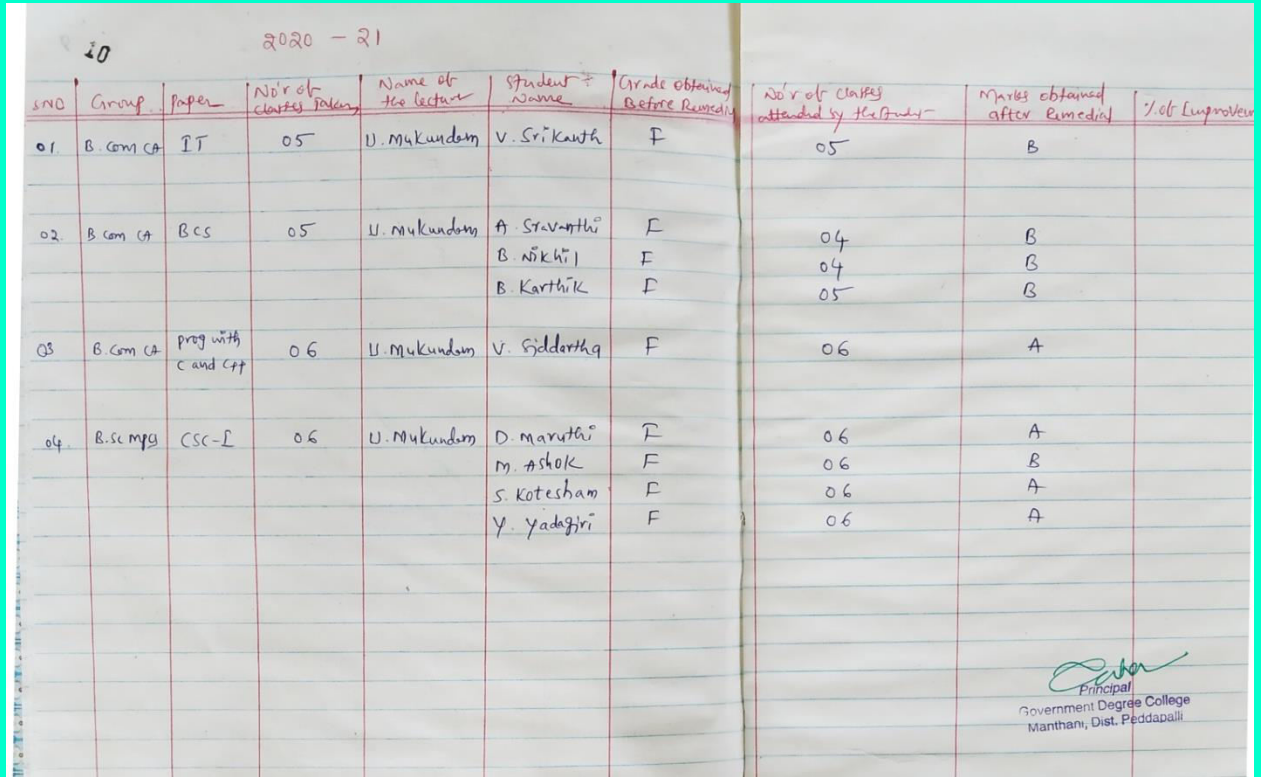 10 2020 - 21
SNO Group Paper No'r of classes Taken Name of the lecture Student Name Grade obtained Before Remedial No'r of classes attended by the Marks obtained after Remedial % of Improvem
01. B. com CA IT 05 U. Mukundam V. Srikanth F 05 B
02. B com CA BCS 05 U. Mukundam A. Sravanthi F 04 B
B. Nikhil F 04 B
B. Karthik F 05 B
03 B. Com CA prog with C and C++ 06 U. Mukundam V. Siddartha F 06 A
04. B.sc mpcs CSC-I 06 U. Mukundam D. maruthi F 06 A
M. Ashok F 06 B
S. Kotesham F 06 A
Y. Yadagiri F 06 A
Principal
Government Degree College
Manthani, Dist. Peddapalli